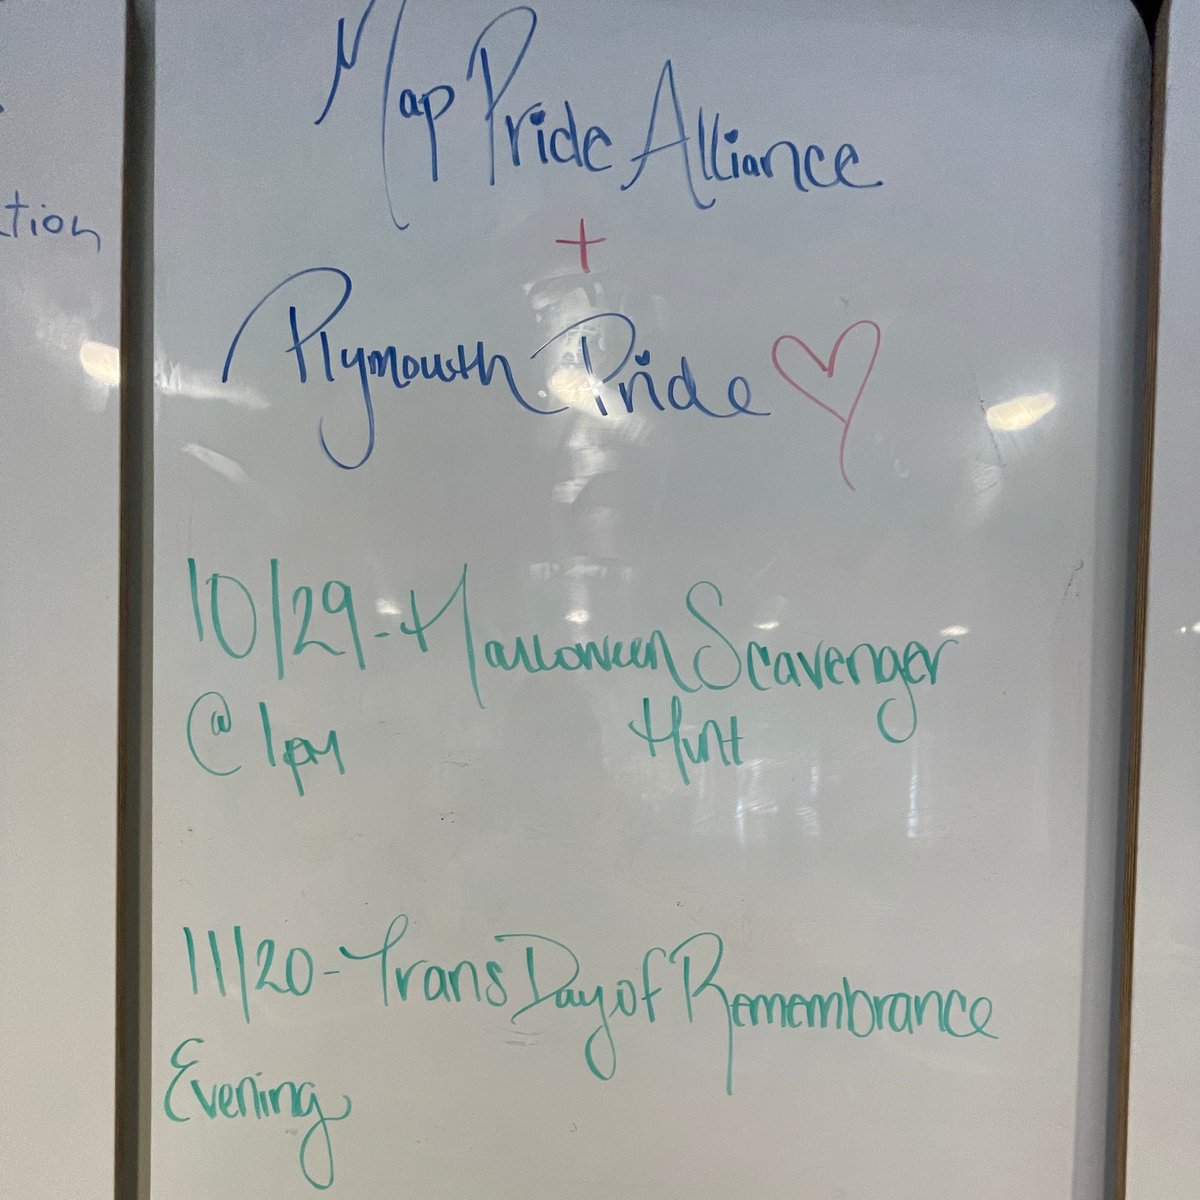 Map Pride Alliance
+
Plymouth Pride
10/29 - Halloween Scavenger
@ 1pm Hunt
11/20 - Trans Day of Remembrance
Evening
tion